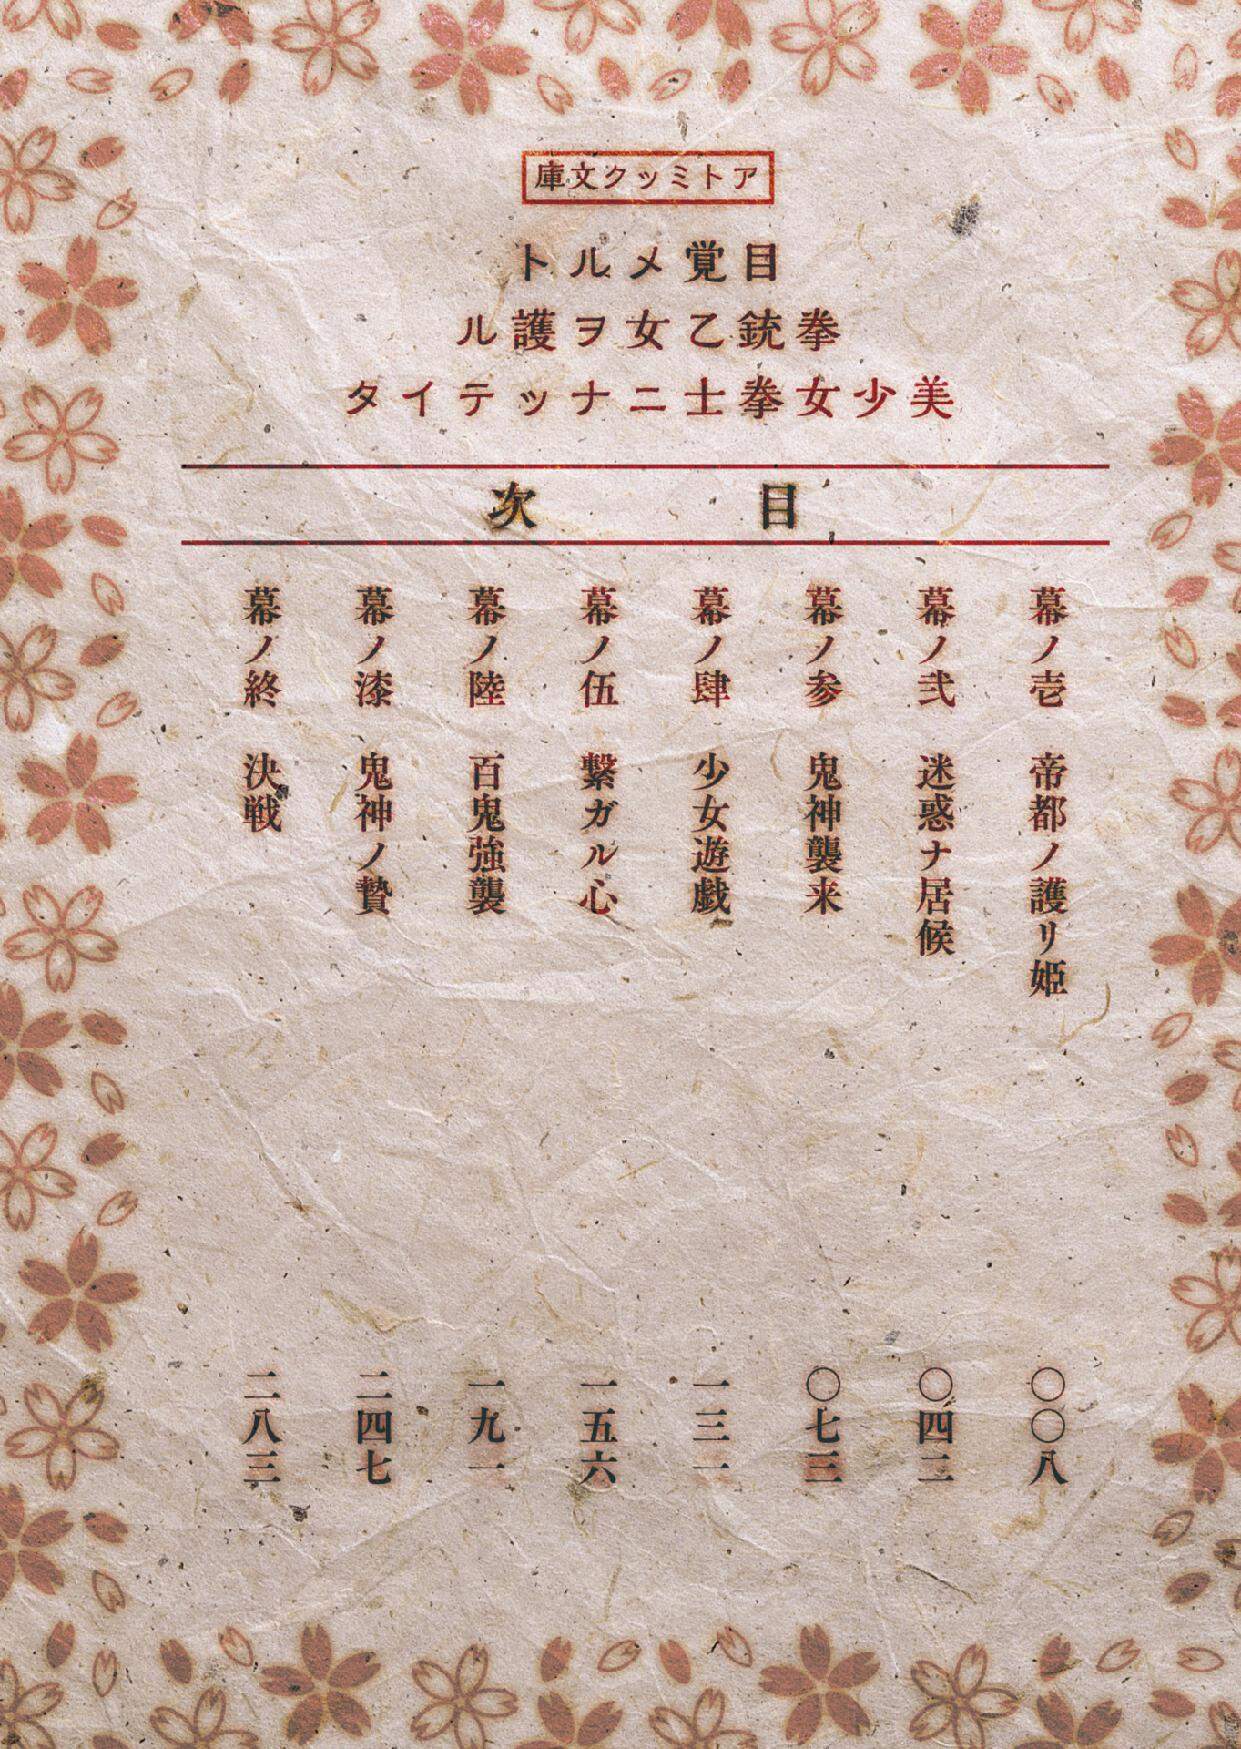 アトミック文庫
目覚メルト
拳銃乙女ヲ護ル
美少女拳士ニナッテイタ
目次
幕ノ壱 帝都ノ護リ姫 〇〇八
幕ノ弐 迷惑ナ居候 〇四二
幕ノ参 鬼神襲来 〇七三
幕ノ肆 少女遊戯 一三一
幕ノ伍 繋ガル心 一五六
幕ノ陸 百鬼強襲 一九一
幕ノ漆 鬼神ノ贄 二四七
幕ノ終 決戦 二八三